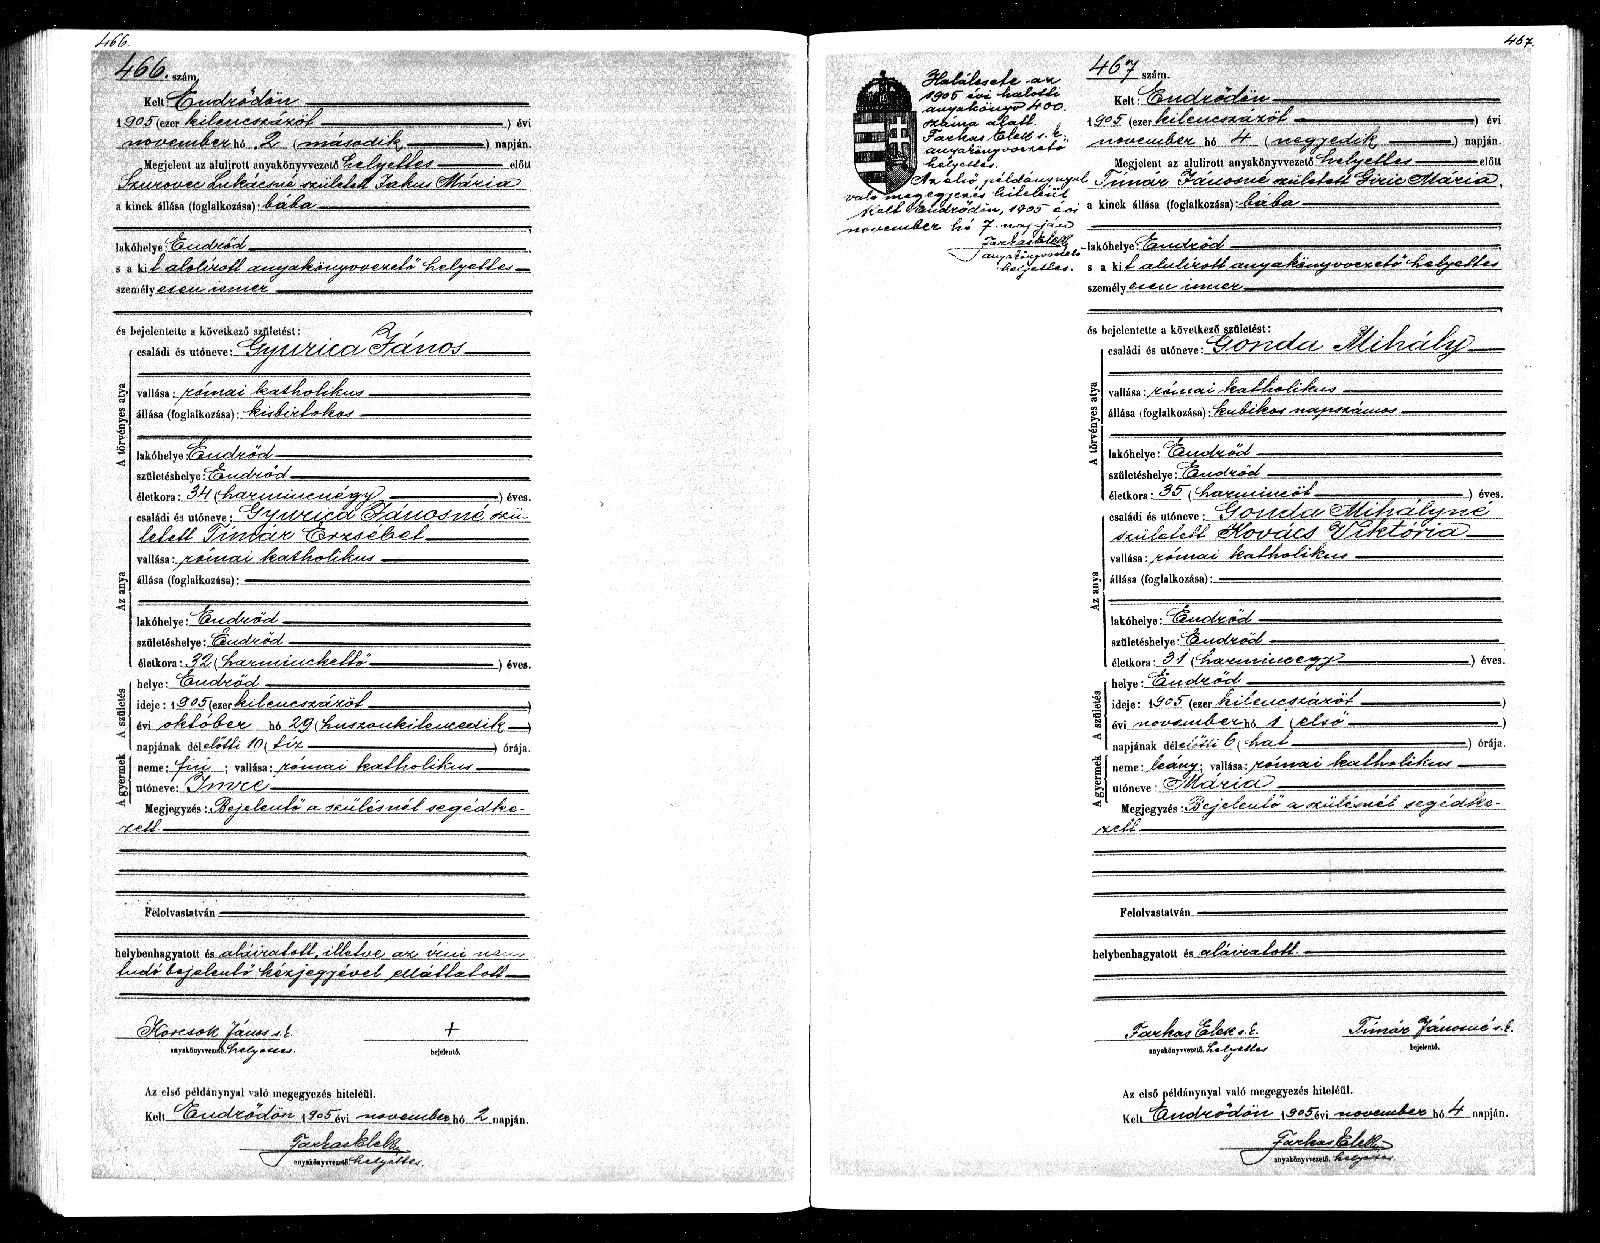 466.
466. szám
Kelt Endrődön
1905 (ezer kilencszázöt ) évi
november hó 2 (második ) napján.
Megjelent az alulirott anyakönyvvezető helyettes előtt
Szurovec Lukácsné született Jakus Mária
a kinek állása (foglalkozása): bába
lakóhelye Endrőd
s a kit alulírott anyakönyvvezető helyettes
személyesen ismer
és bejelentette a következő születést:
A törvényes atya
családi és utóneve: Gyurica János
vallása: római katholikus
állása (foglalkozása): kisbirtokos
lakóhelye: Endrőd
születéshelye: Endrőd
életkora: 34 (harmincnégy ) éves.
Az anya
családi és utóneve: Gyurica Jánosné szü-
letett Tímár Erzsébet
vallása: római katholikus
állása (foglalkozása):
lakóhelye: Endrőd
születéshelye: Endrőd
életkora: 32 (harminckettő ) éves.
A születés
helye: Endrőd
ideje: 1905 (ezer kilencszázöt )
évi október hó 29 (huszonkilencedik )
napjának délelőtti 10 (tíz ) órája.
A gyermek
neme: fiú ; vallása: római katholikus
utóneve: Imre
Megjegyzés: Bejelentő a szülésnél segédke-
zett.
Felolvastatván
helybenhagyatott és aláiratott, illetve az írni nem
tudó bejelentő kézjegyével elláttatott
Korcsok János s. k. +
anyakönyvvezető helyettes. bejelentő.
Az első példánynyal való megegyezés hiteléül.
Kelt Endrődön 1905 évi november hó 2 napján.
Farkas Elek
anyakönyvvezető helyettes.
467.
Halálesete az
1905 évi halotti
anyakönyv 400.
száma alatt
Farkas Elek s. k.
anyakönyvvezető
helyettes.
Az első példánynyal
való megegyezés hiteléül
Kelt Endrődön, 1905 évi
november hó 7 napján
Farkas Elek
anyakönyvvezető
helyettes.
467 szám.
Kelt: Endrődön
1905 (ezer kilencszázöt ) évi
november hó 4 (negyedik ) napján.
Megjelent az alulirott anyakönyvvezető helyettes előtt
Tímár Jánosné született Giric Mária,
a kinek állása (foglalkozása): bába
lakóhelye: Endrőd
s a kit alulírott anyakönyvvezető helyettes
személyesen ismer
és bejelentette a következő születést:
A törvényes atya
családi és utóneve: Gonda Mihály
vallása: római katholikus
állása (foglalkozása): kubikos napszámos
lakóhelye: Endrőd
születéshelye: Endrőd
életkora: 35 (harmincöt ) éves.
Az anya
családi és utóneve: Gonda Mihályné
született Kovács Viktória
vallása: római katholikus
állása (foglalkozása):
lakóhelye: Endrőd
születéshelye: Endrőd
életkora: 31 (harmincegy ) éves.
A születés
helye: Endrőd
ideje: 1905 (ezer kilencszázöt )
évi november hó 1 (első )
napjának délelőtti 6 (hat ) órája.
A gyermek
neme: leány; vallása: római katholikus
utóneve: Mária
Megjegyzés: Bejelentő a szülésnél segédke-
zett
Felolvastatván
helybenhagyatott és aláiratott.
Farkas Elek s. k. Tímár Jánosné s. k.
anyakönyvvezető helyettes bejelentő.
Az első példánynyal való megegyezés hiteléül.
Kelt Endrődön 1905 évi november hó 4 napján.
Farkas Elek
anyakönyvvezető helyettes